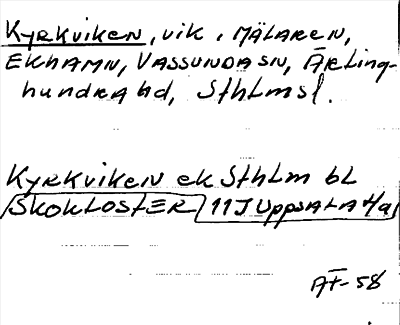 Kyrkviken, vik, Mälaren,
Ekhamn, Vassunda sn, Ärling-
hundra hd, Sthlms l.
Kyrkviken ek Sthlm bl
Skokloster 11J Uppsala
ÄT-58